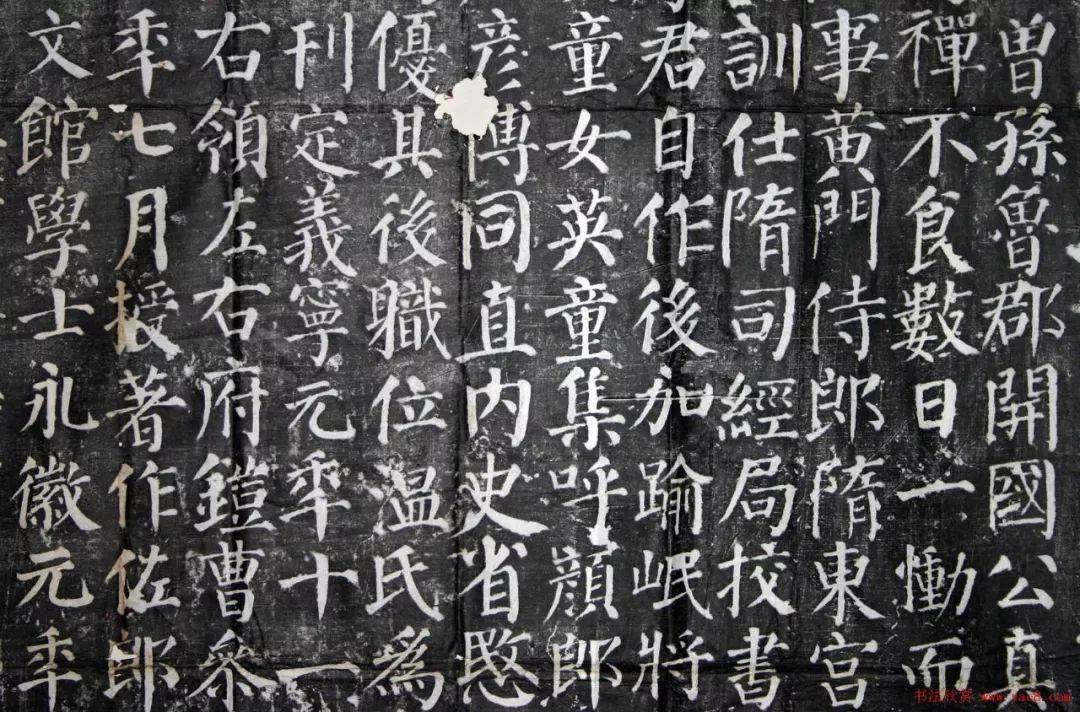 曾孫魯郡開國公真
禪不食數日一慟而
事黃門侍郎隋東宮
訓仕隋司經局挍書
君自作後加踰岷將
童女英童集呼顏郎
彥博同直內史省愍
優其後職位溫氏為
刊定義寧元年十一
右領左右府鎧曹參
年七月授著作佐郎
文館學士永徽元年
书法欣赏 www.yac8.com